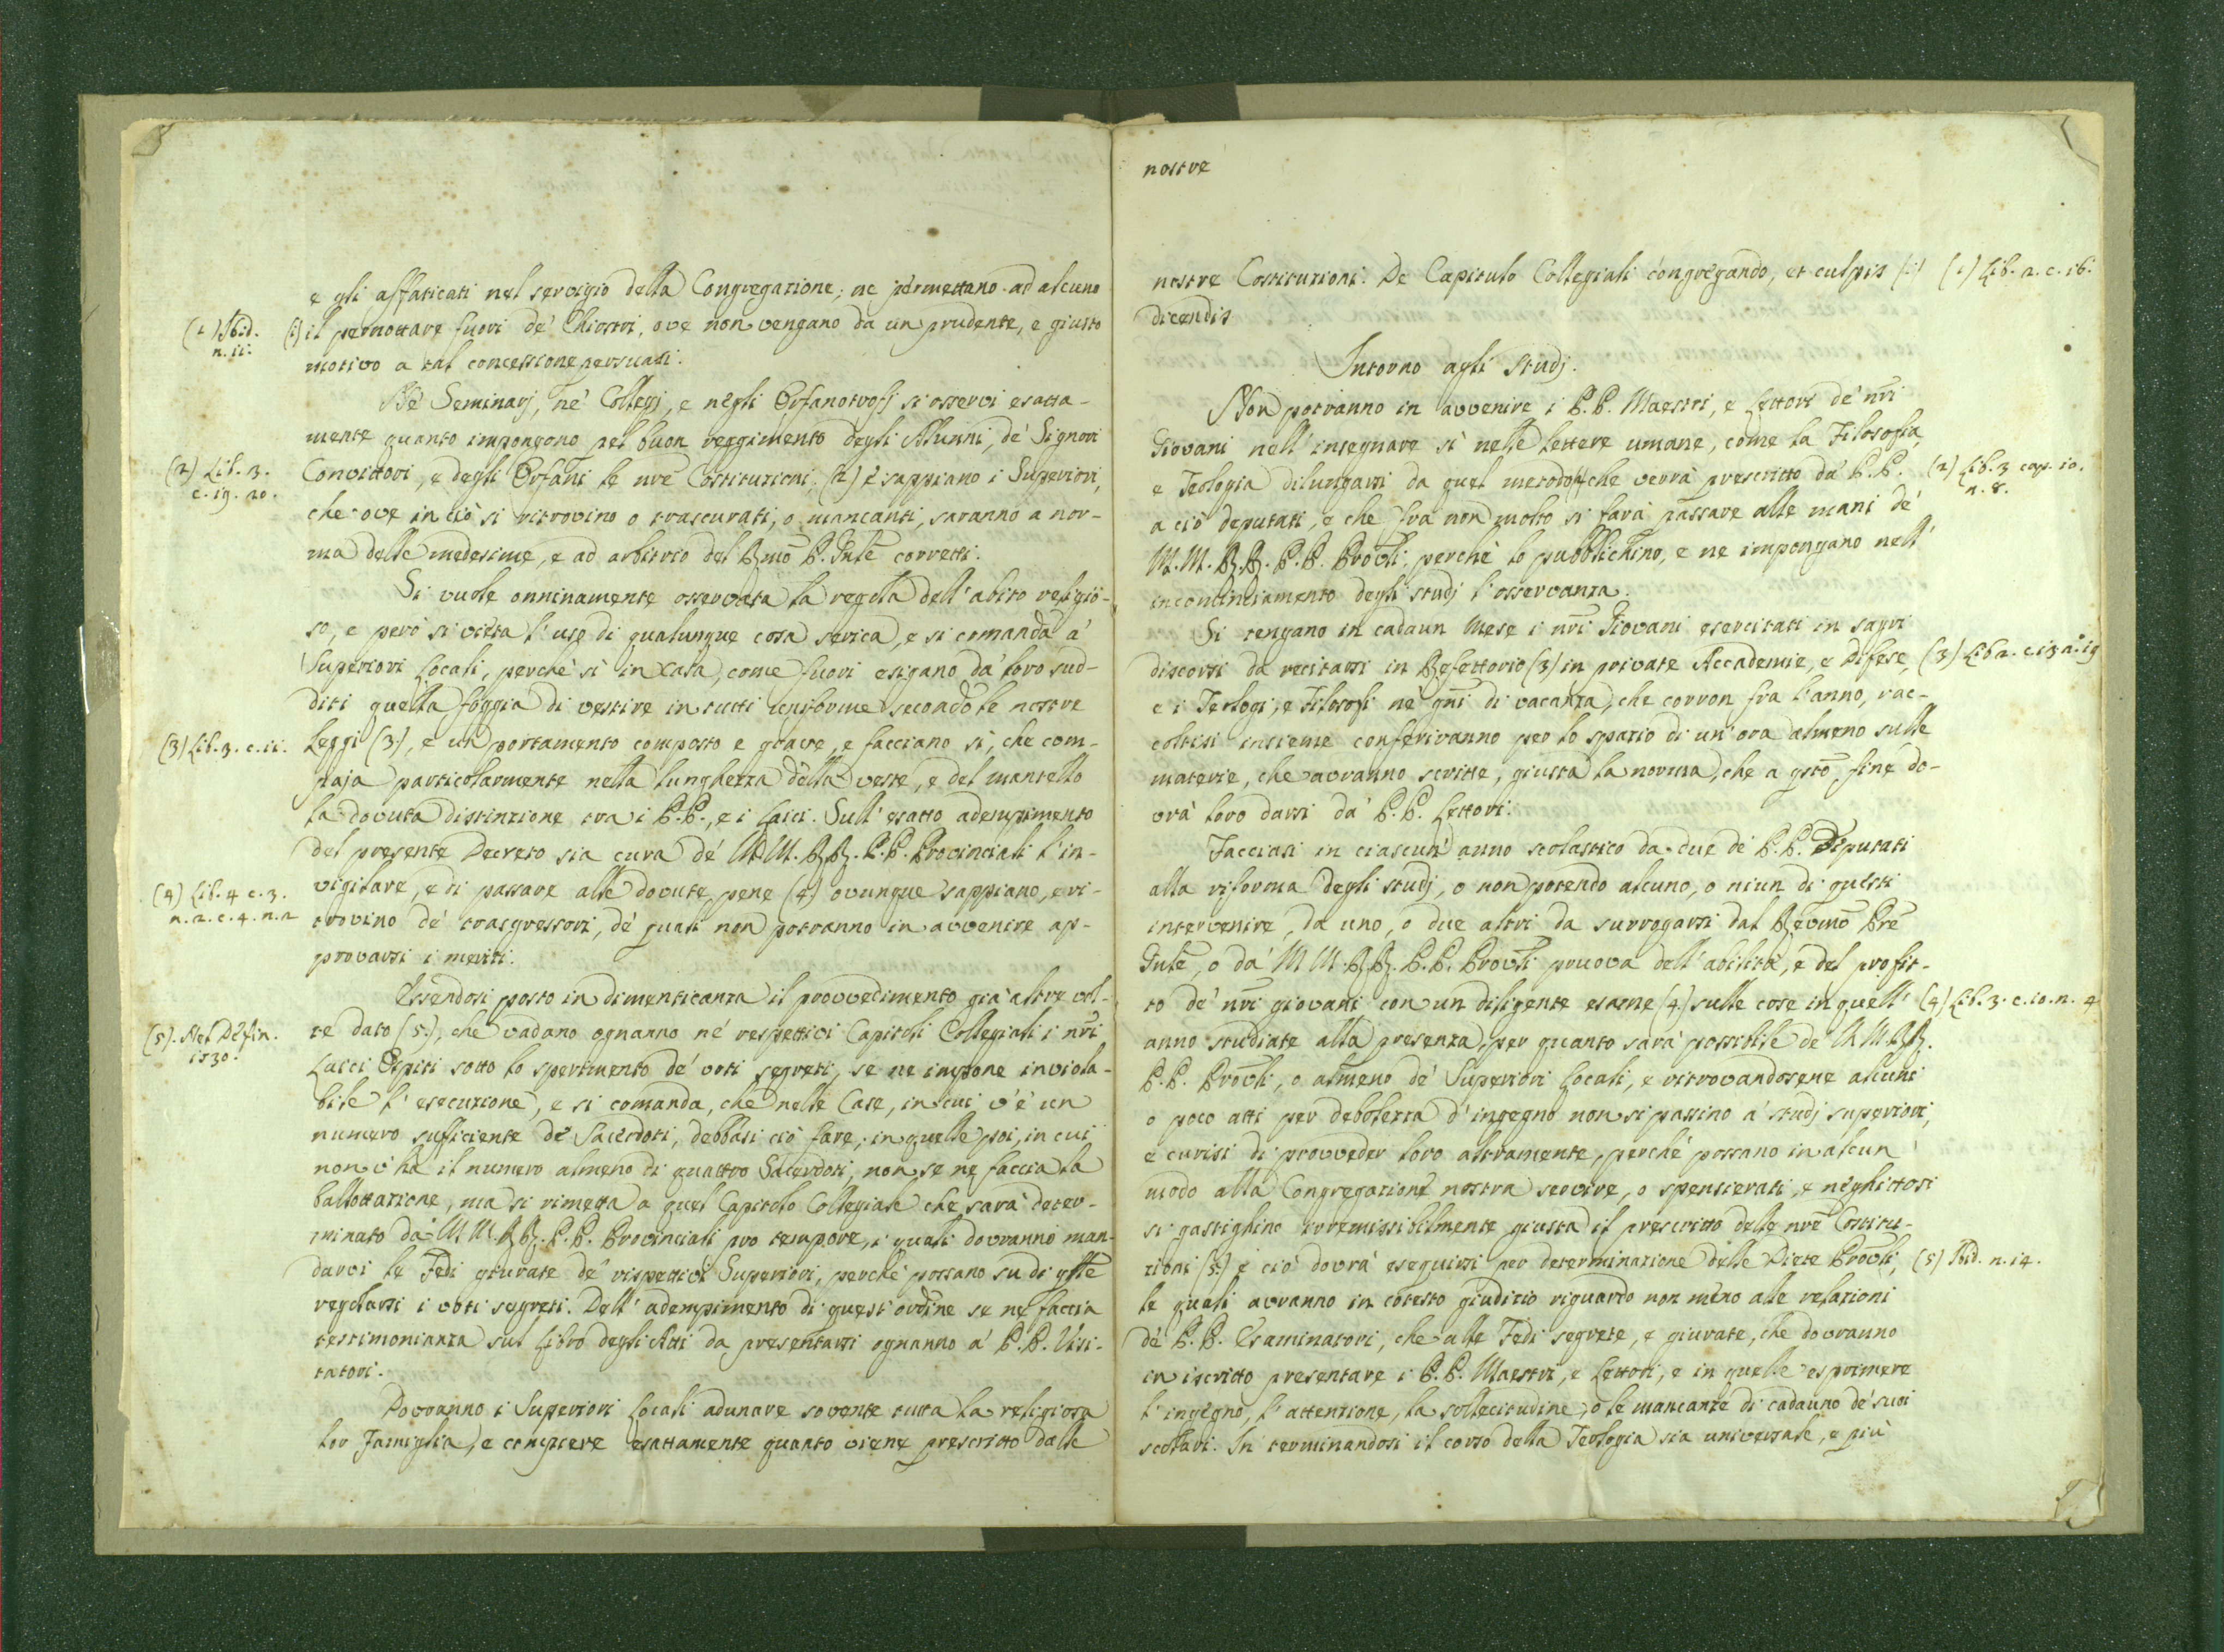 e gli affaticati nel servigio della Congregazione; ne permettano ad alcuno
(1) Ibid.
n. 11.
(1) il pernottare fuori de' Chiostri, ove non vengano da un prudente, e giusto
motivo a tal concessione persuasi.
Ne' Seminarj, ne' Collegj, e negli Orfanotrofj si osservi esatta-
mente quanto impongono pel buon reggimento degli Alunni, de' Signori
(2) Lib. 3.
c. 19. 20.
Convittori, e degli Orfani le nre Costituzioni, (2) e sappiano i Superiori,
che ove in ciò si ritrovino o trascurati, o mancanti, saranno a nor-
ma delle medesime, e ad arbitrio del Rmo P. Gnle corretti.
Si vuole onninamente osservata la regola dell'abito religio-
so, e però si vieta l'uso di qualunque cosa serica, e si comanda a'
Superiori Locali, perchè sì in Casa, come fuori esigano da' loro sud-
diti quella foggia di vestire in tutti uniforme secondo le nostre
(3) Lib. 3. c. 11.
Leggi (3), e un portamento composto e grave, e facciano sì, che com-
paja particolarmente nella lunghezza della veste, e del mantello
la dovuta distinzione tra i P.P., e i Laici. Sull'esatto adempimento
del presente Decreto sia cura de' M.M. R.R. P.P. Provinciali l'in-
(4) Lib. 4 c. 3.
n. 2. c. 4. n. 2
vigilare, e di passare alle dovute pene (4) ovunque sappiano, e ri-
trovino de' trasgressori, de' quali non potranno in avvenire ap-
provarsi i meriti.
Essendosi posto in dimenticanza il provvedimento già altre vol-
(5). Nel Defin.
1730.
te dato (5), che vadano ognanno ne' respettivi Capitoli Collegiali i nri
Laici Ospiti sotto lo sperimento de' voti segreti, se ne impone inviola-
bile l'esecuzione, e si comanda, che nelle Case, in cui v'è un
numero sufficiente de' Sacerdoti, debbasi ciò fare; in quelle poi, in cui
non v'ha il numero almeno di quattro Sacerdoti, non se ne faccia la
ballottazione, ma si rimetta a quel Capitolo Collegiale che sarà deter-
minato da' M.M. R.R. P.P. Provinciali pro tempore, i quali dovranno man-
darvi le Fedi giurate de' rispettivi Superiori, perchè possano su di qlle
regolarsi i voti segreti. Dell'adempimento di quest'ordine se ne faccia
testimonianza sul Libro degli Atti da presentarsi ognanno a' P.P. Visi-
tatori.
Dovranno i Superiori Locali adunare sovente tutta la religiosa
lor Famiglia, e compiere esattamente quanto viene prescritto dalle
nostre
nostre Costituzioni: De Capitulo Collegiali congregando, et culpis (1)
(1) Lib. 2. c. 16.
dicendis
Intorno agli Studj.
Non potranno in avvenire i P.P. Maestri, e Lettori de' nri
Giovani nell'insegnare sì nelle lettere umane, come la Filosofia,
e Teologia dilungarsi da quel metodo che verrà prescritto da' P.P.
(2) Lib. 3 cap. 10.
n. 8.
a ciò deputati, e che fra non molto si farà passare alle mani de'
M.M. R.R. P.P. Provli, perchè lo pubblichino, e ne impongano nell'
incominciamento degli studj l'osservanza.
Si tengano in cadaun Mese i nri Giovani esercitati in sagri
discorsi da recitarsi in Refettorio (3) in private Accademie, e Difese,
(3) Lib 2. c. 13 a. 19
e i Teologi, e Filosofi ne' gni di vacanza, che corron fra l'anno, rac-
coltisi insieme conferiranno per lo spazio di un'ora almeno sulle
materie, che avranno scritte, giusta la norma, che a qsto fine do-
vrà loro darsi da' P.P. Lettori.
Facciasi in ciascun' anno scolastico da due de' P.P. Deputati
alla riforma degli studj, o non potendo alcuno, o niun di questi
intervenire, da uno, o due altri da surrogarsi dal Revmo Pre
Gnle, o da' M.M. R.R. P.P. Provli pruova dell'abilità, e del profit-
to de' nri giovani con un diligente esame (4) sulle cose in quell'
(4) Lib. 3. c. 10. n. 4
anno studiate alla presenza, per quanto sarà possibile de' M.M. R.R.
P.P. Provli, o almeno de' Superiori Locali, e ritrovandosene alcuni
o poco atti per debolezza d'ingegno non si passino a' studj superiori,
e curisi di provveder loro altramente, perchè possano in alcun
modo alla Congregazione nostra servire, o spensierati, e neghittosi
si gastighino irremissibilmente giusta il prescritto delle nre Costitu-
zioni (5) e ciò dovrà eseguirsi per determinazione delle Diete Provli,
(5) Ibid. n. 14.
le quali avranno in cotesto giudizio riguardo non meno alle relazioni
de' P.P. Esaminatori, che alle Fedi segrete, e giurate, che dovranno
in iscritto presentare i P.P. Maestri, e Lettori, e in quelle esprimere
l'ingegno, l'attenzione, la sollecitudine, o le mancanze di cadauno de' suoi
scolari. In terminandosi il corso della Teologia sia universale, e più